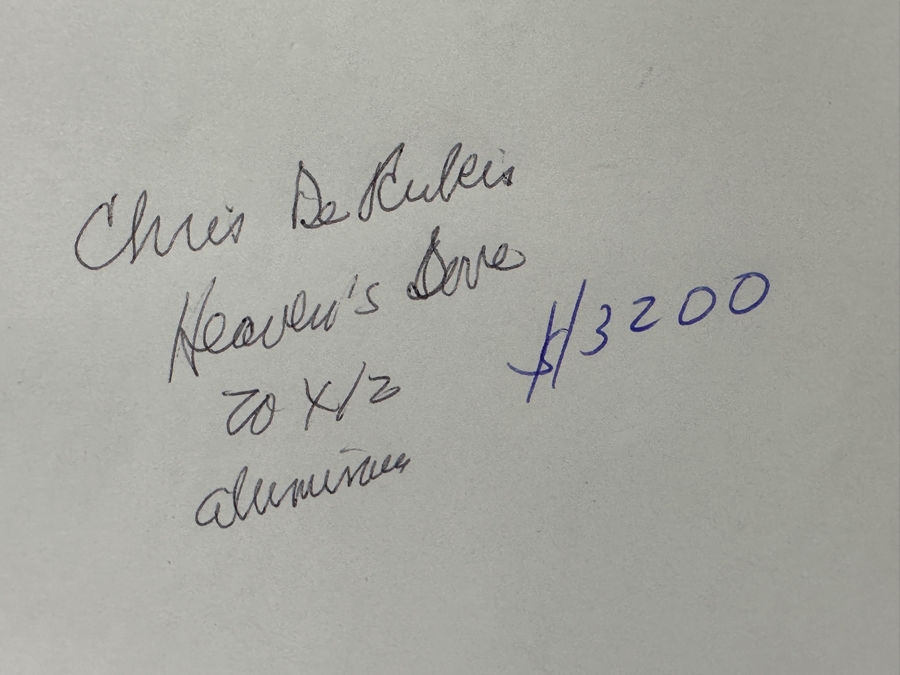 Chris DeRubeis
Heaven's Dove
20 X 12
aluminum
$3200